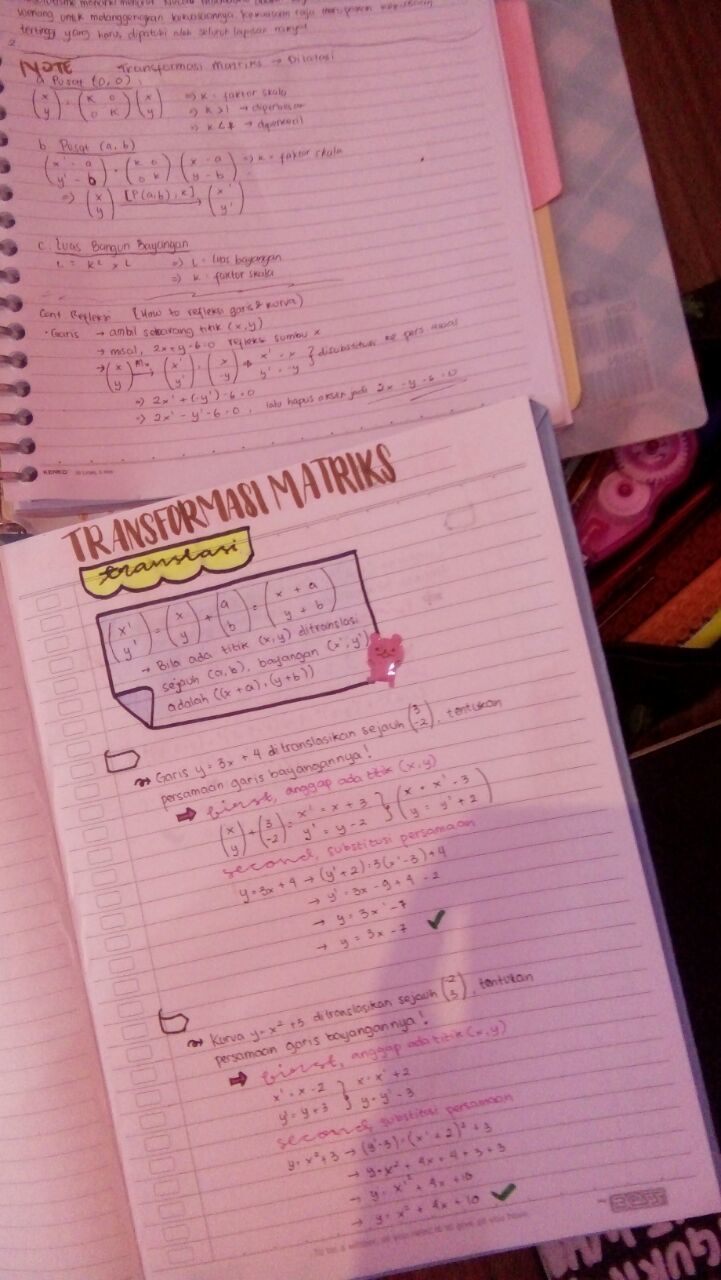 tertinggi yang harus dipatuhi oleh seluruh lapisan rakyat
2.
NOTE Transformasi Matriks → Dilatasi
a. Pusat (0,0)
(x y) = (K 0 0 K) (x y) ⇒ K = faktor skala
⇒ K > 1 → diperbesar
⇒ K < → diperkecil
b. Pusat (a, b)
(x' - a y' - b) = (K 0 0 K) (x - a y - b) ⇒ K = faktor skala
⇒ (x y) [P(a,b), K] → (x' y')
c. Luas Bangun Bayangan
L = K² × L ⇒ L = luas bayangan
⇒ K = faktor skala
Cont. Refleksi (How to refleksi garis & kurva)
• Garis → ambil sebarang titik (x,y)
→ misal, 2x + y - 6 = 0 refleksi sumbu x
→ (x y) Mx → (x' y') = (x -y) ⇒ x' = x y' = -y } disubstitusi ke pers awal
⇒ 2x' + (-y') - 6 = 0
⇒ 2x' - y' - 6 = 0, lalu hapus aksen jadi 2x - y - 6 = 0
KENKO
TRANSFORMASI MATRIKS
translasi
(x' y') = (x y) + (a b) = (x + a y + b)
→ Bila ada titik (x,y) ditranslasi
sejauh (a,b), bayangan (x',y')
adalah ((x+a),(y+b))
Garis y = 3x + 4 ditranslasikan sejauh (3 -2), tentukan
persamaan garis bayangannya!
first, anggap ada titik (x,y)
(x y) + (3 -2) = x' = x + 3 y' = y - 2 } (x = x' - 3 y = y' + 2)
second, substitusi persamaan
y = 3x + 4 → (y' + 2) = 3(x' - 3) + 4
→ y' = 3x - 9 + 4 - 2
→ y = 3x' - 7
→ y = 3x - 7 ✓
Kurva y = x² + 3 ditranslasikan sejauh (-2 3), tentukan
persamaan garis bayangannya!
first, anggap ada titik (x,y)
x' = x - 2 } x = x' + 2
y' = y + 3 } y = y' - 3
second, substitusi persamaan
y = x² + 3 → (y' - 3) = (x' + 2)² + 3
→ y = x² + 4x + 4 + 3 + 3
→ y = x'² + 4x + 10
→ y = x² + 4x + 10 ✓